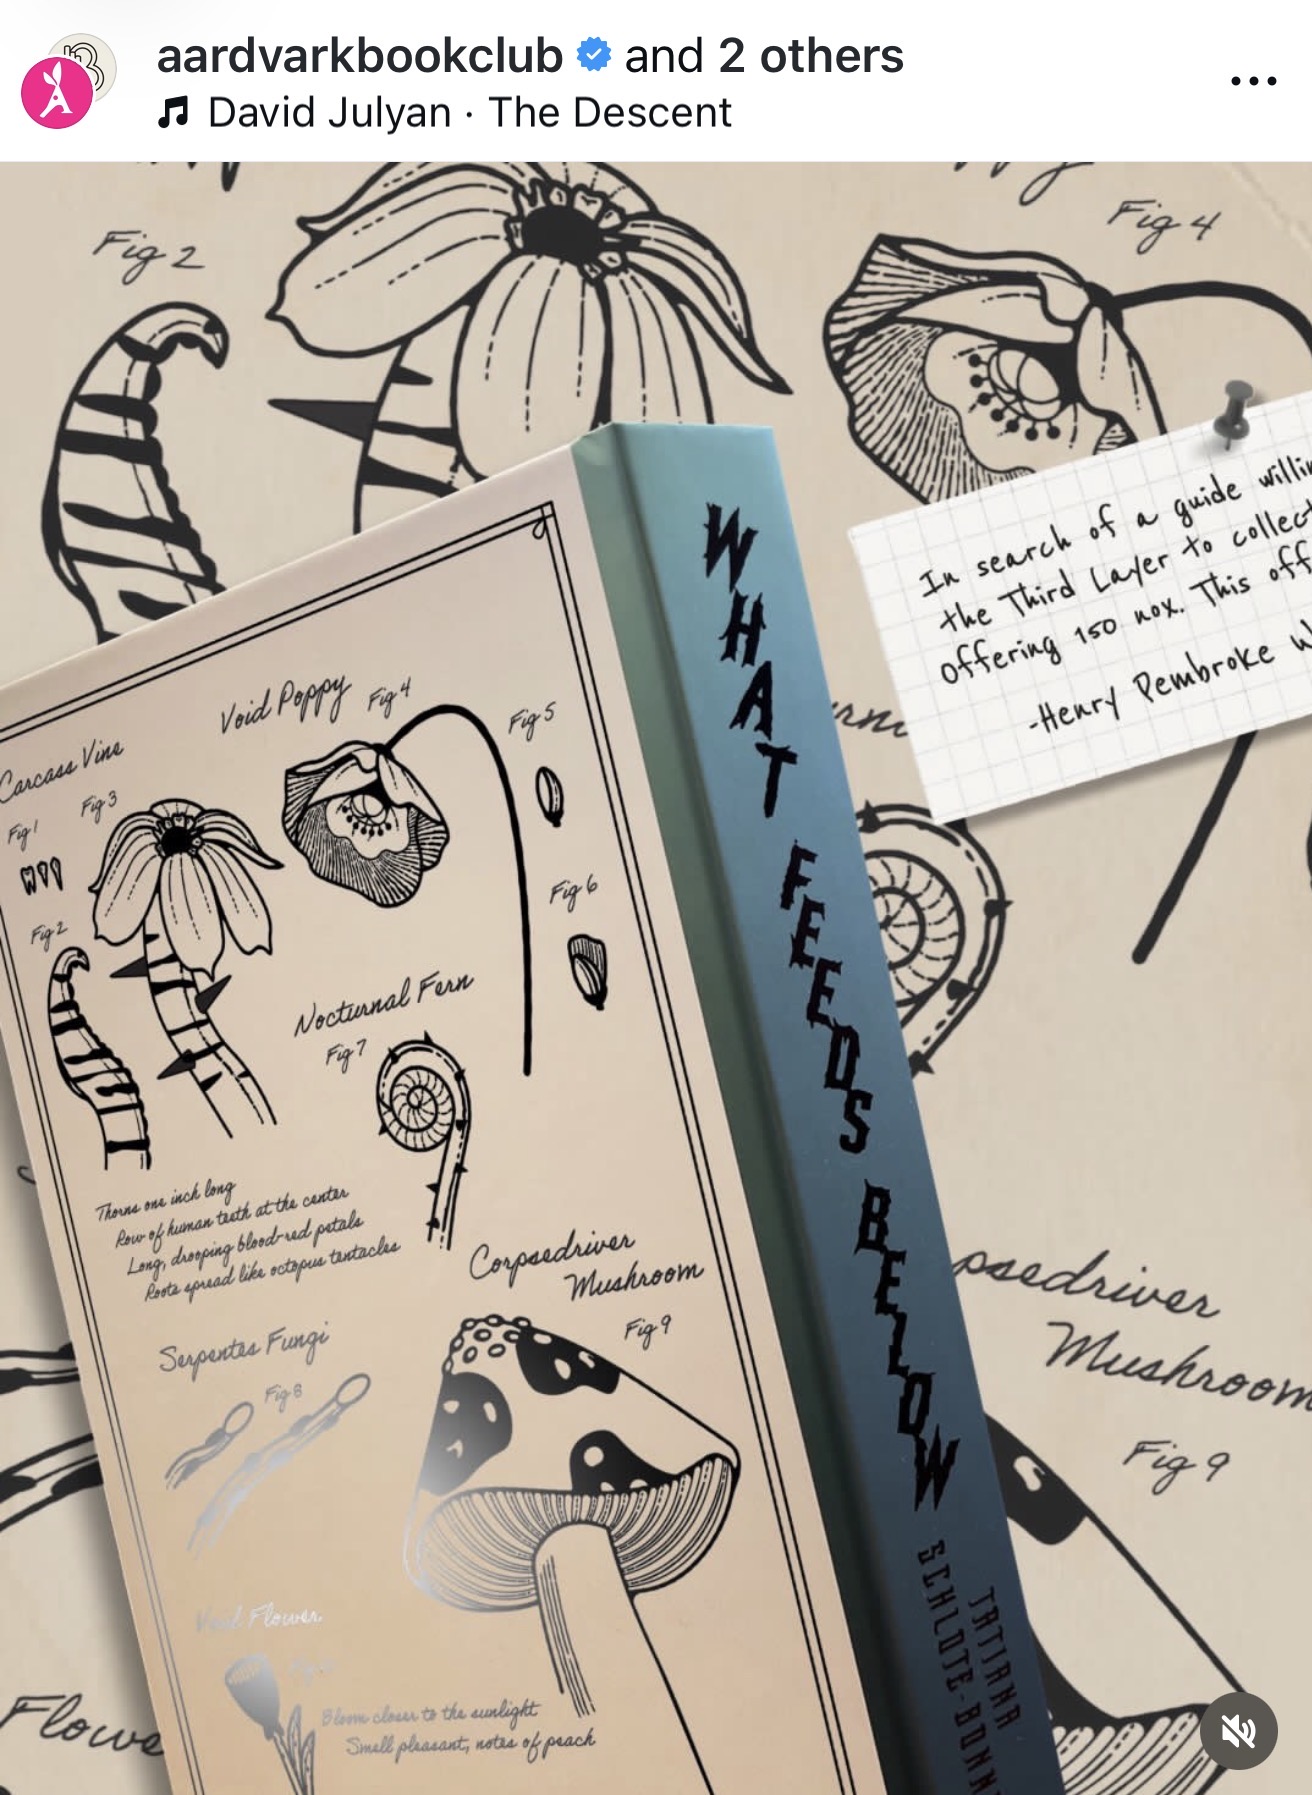 aardvarkbookclub and 2 others
David Julyan · The Descent
Fig 2
Fig 4
In search of a guide
the Third Layer to collect
offering 150 nox. This
-Henry Pembroke
WHAT FEEDS BELOW
TATIANA
SCHLOTE-BONN
Void Poppy
Fig 4
Fig 5
Carcass Vine
Fig 3
Fig 1
Fig 2
Fig 6
Nocturnal Fern
Fig 7
Thorns one inch long
Row of human teeth at the center
Long, drooping blood-red petals
Roots spread like octopus tentacles
Corpsedriver
Mushroom
Fig 9
Serpentes Fungi
Fig 8
Void Flower
Bloom closer to the sunlight
Smell pleasant, notes of peach
psedriver
Mushroom
Fig 9
Flowe